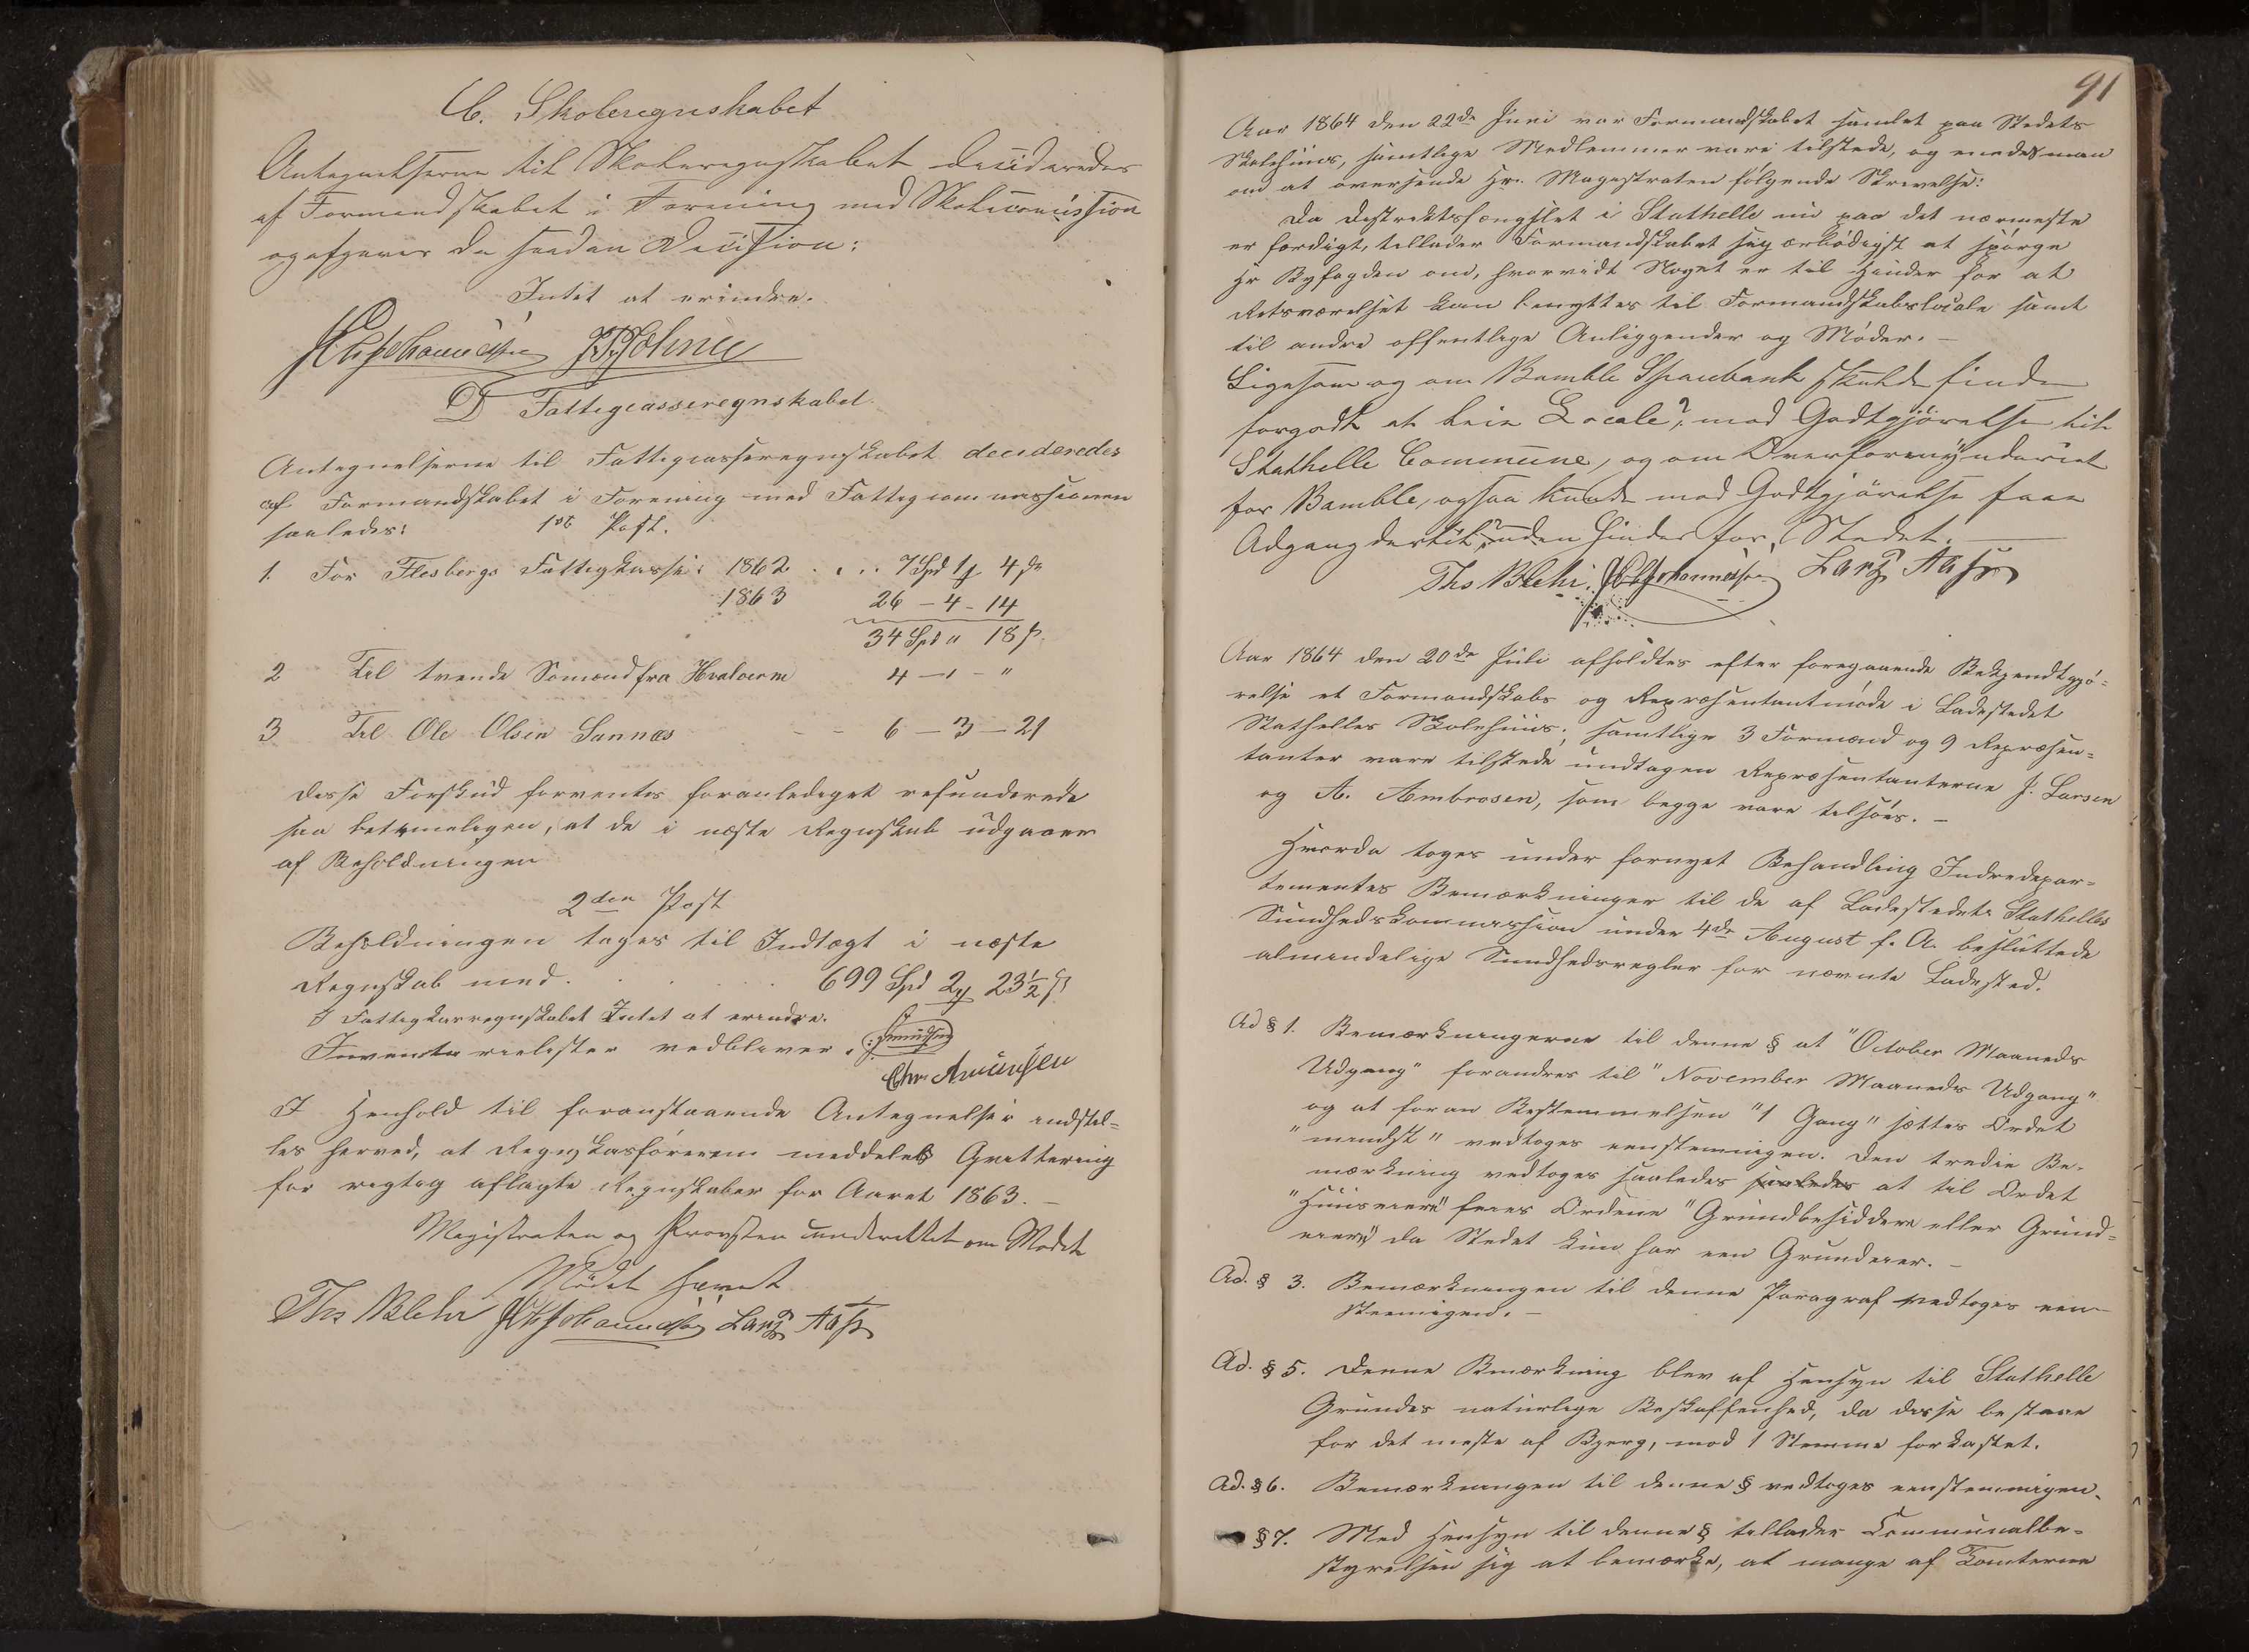 C. Skoleregnskabet
Antegnelserne til Skoleregnskabet decideredes
af Formandskabet i Forening med Skolecommission
og afgaves da saadan Decission:
Intet at erindre.
D Fattigcasseregnskabet.
Antegnelserne til Fattigcasseregnskabet decideredes
af Formandskabet i Forening med Fattigcommissionen
saaledes:
1ste Post.
1. For Flesbergs Fattigkasse: 1862 . . . 7 Spd 1 4
1863 26 – 4 – 14
34 Spd " 18 ß.
2 Til trende Sømænd fra Hvaloerne 4 – 1 – "
3 Til Ole Olsen Sannæs - - 6 – 3 – 21
disse Forskud forventes foranlediget refunderede
saa betimeligen, at de i næste Regnskab udgaaer
af Beholdningen
2den Post
Beholdningen tages til Indtægt i næste
Regnskab med . . . . . . 699 Spd 2 23½ ß
I Fattigkasregnskabet Intet at erindre.
Inventarielister vedbliver.
Chr. Amundsen
I Henhold til foranstaaende Antegnelser indstil=
les herved, at Regnskasføreren meddeles Qvittering
for rigtig aflagte Regnskaber for Aaret 1863. –
Magistraten og Provsten underrettet om Mødet
Mødet hævet
Ths Blehr J Chr Johannessen Lars Aas
91
Aar 1864 den 22de Juni var Formandskabet samlet paa Stedets
Skolehuus, samtlige Medlemmer vare tilstede, og enedes man
om at oversende Hr. Magistraten følgende Skrivelse:
Da Distriktsfængslet i Stathelle nu paa det nærmeste
er færdigt, tillader Formandskabet sig ærbødigst at spørge
Hr Byfogden om, hvorvidt Noget er til Hinder for at
Retsværelset kan benyttes til Formandskabslocale samt
til andre offentlige Anliggender og Møder. –
Ligesom og om Bamble Sparebank skulde finde
forgodt at leie Locale?, mod Godtgjørelse til
Stathelle Commune, og om Overformynderiet
for Bamble, ogsaa kunde mod Godtgjørelse faae
Adgang dertil uden Hinder for Stedet. –
Ths Blehr J Chr Johannessen Lars Aas
Aar 1864 den 20de Juli afholdtes efter foregaaende Bekjendtgjø=
relse et Formandskabs og Repræsentantmøde i Ladestedet
Stathelles Skolehuus; samtlige 3 Formænd og 9 Repræsen=
tanter vare tilstede undtagen Repræsentanterne J. Larsen
og A. Ambrosen, som begge vare tilsøes. –
Hvorda toges under fornyet Behandling Indredepar=
tementes Bemærkninger til de af Ladestedet Stathelles
Sundhedskommission under 4de August f. A. besluttede
almindelige Sundhedsregler for nævnte Ladested.
Ad § 1. Bemærkningerne til denne § at "October Maaneds
Udgang" forandres til "November Maaneds Udgang"
og at foran Bestemmelsen "1 Gang" sættes Ordet
"mindst" vedtoges eenstemmigen. Den tredie Be-
mærkning vedtoges saaledes saaledes at til Ordet
"Huuseiere" føies Ordene "Grundbesiddere eller Grund=
eiere" da Stedet kun har een Grundeier. –
Ad. § 3. Bemærkningen til denne Paragraf vedtoges een-
stemmigen. –
Ad. § 5. Denne Bemærkning blev af Hensyn til Stathelle
Grundes naturlige Beskaffenhed, da disse bestaae
for det meste af Bjerg, mod 1 Stemme forkastet.
Ad. § 6. Bemærkningen til denne § vedtoges eenstemmigen.
§ 7. Med Hensyn til denne § tillader Communalbe-
styrelsen sig at bemærke, at mange af Tomterne